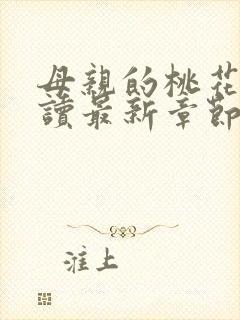 母親的桃花
讀最新章節
淮上